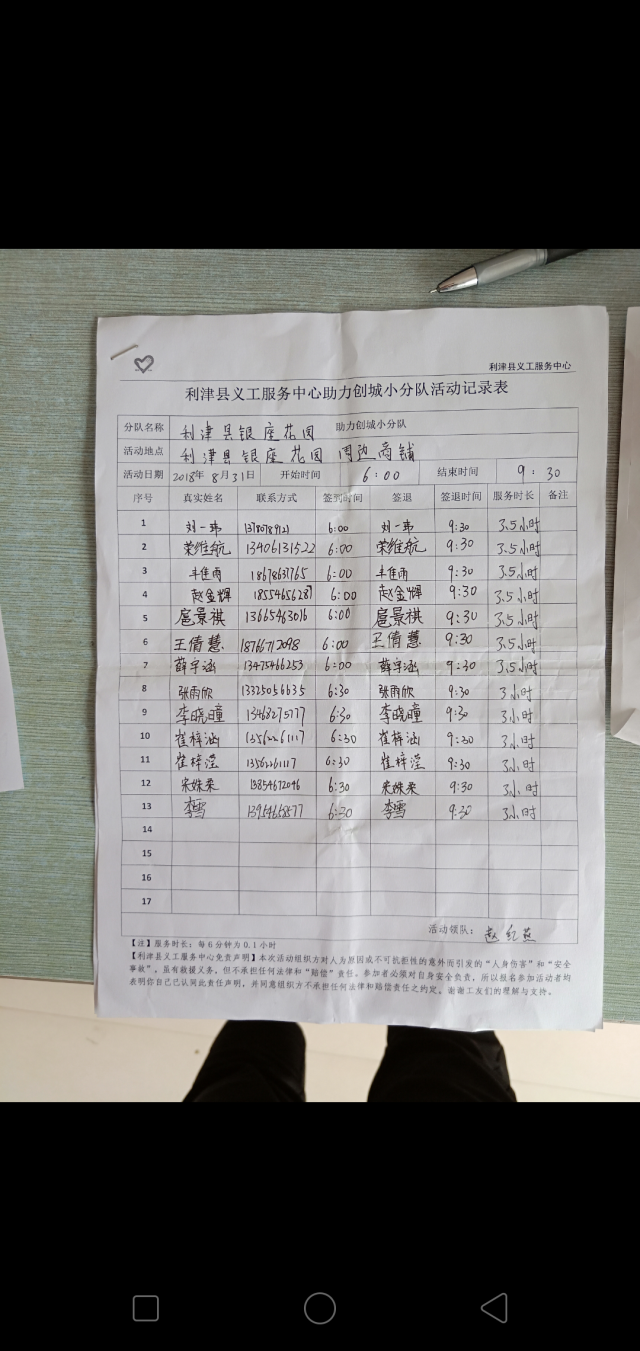 利津县义工服务中心
利津县义工服务中心助力创城小分队活动记录表
分队名称 利津县银座花园 助力创城小分队
活动地点 利津县银座花园 周边商铺
活动日期 2018年8月31日 开始时间 6:00 结束时间 9:30
序号 真实姓名 联系方式 签到时间 签退 签退时间 服务时长 备注
1 刘一玮 6:00 刘一玮 9:30 3.5小时
2 荣维航 13406131522 6:00 荣维航 9:30 3.5小时
3 丰佳雨 18678637765 6:00 丰佳雨 9:30 3.5小时
4 赵金辉 18554656287 6:00 赵金辉 9:30 3.5小时
5 扈景祺 13665463016 6:00 扈景祺 9:30 3.5小时
6 王倩慧 18766712098 6:00 王倩慧 9:30 3.5小时
7 薛宇涵 13475466253 6:00 薛宇涵 9:30 3.5小时
8 张雨欣 13325056635 6:30 张雨欣 9:30 3小时
9 李晓瞳 13468275777 6:30 李晓瞳 9:30 3小时
10 崔梓涵 13562261117 6:30 崔梓涵 9:30 3小时
11 崔梓滢 13562261117 6:30 崔梓滢 9:30 3小时
12 宋姝柔 13854672046 6:30 宋姝柔 9:30 3小时
13 李雪 13954658577 6:30 李雪 9:30 3小时
14
15
16
17
活动领队: 赵红燕
【注】服务时长：每6分钟为0.1小时
【利津县义工服务中心免责声明】本次活动组织方对人为原因或不可抗拒性的意外而引发的“人身伤害”和“安全
事故”，虽有救援义务，但不承担任何法律和“赔偿”责任。参加者必须对自身安全负责，所以报名参加活动者均
表明你自己已认同此责任声明，并同意组织方不承担任何法律和赔偿责任之约定。谢谢工友们的理解与支持。